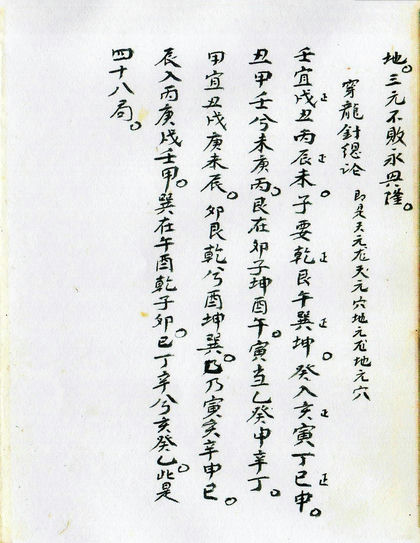 地。三元不敗永興隆。
穿龍針總论 即是天元龙天元穴地元龙地元穴
正 正 正 正 正 正
壬宜戌丑丙辰未。子要乾艮午巽坤。癸入亥寅丁巳申。
丑甲壬兮未庚丙。艮在卯子坤酉午。寅当乙癸申辛丁。
甲宜丑戌庚未辰。卯艮乾兮酉坤巽。乙乃寅亥辛申巳。
辰入丙庚戌壬甲。巽在午酉乾子卯。巳丁辛兮亥癸乙。此是
四十八局。